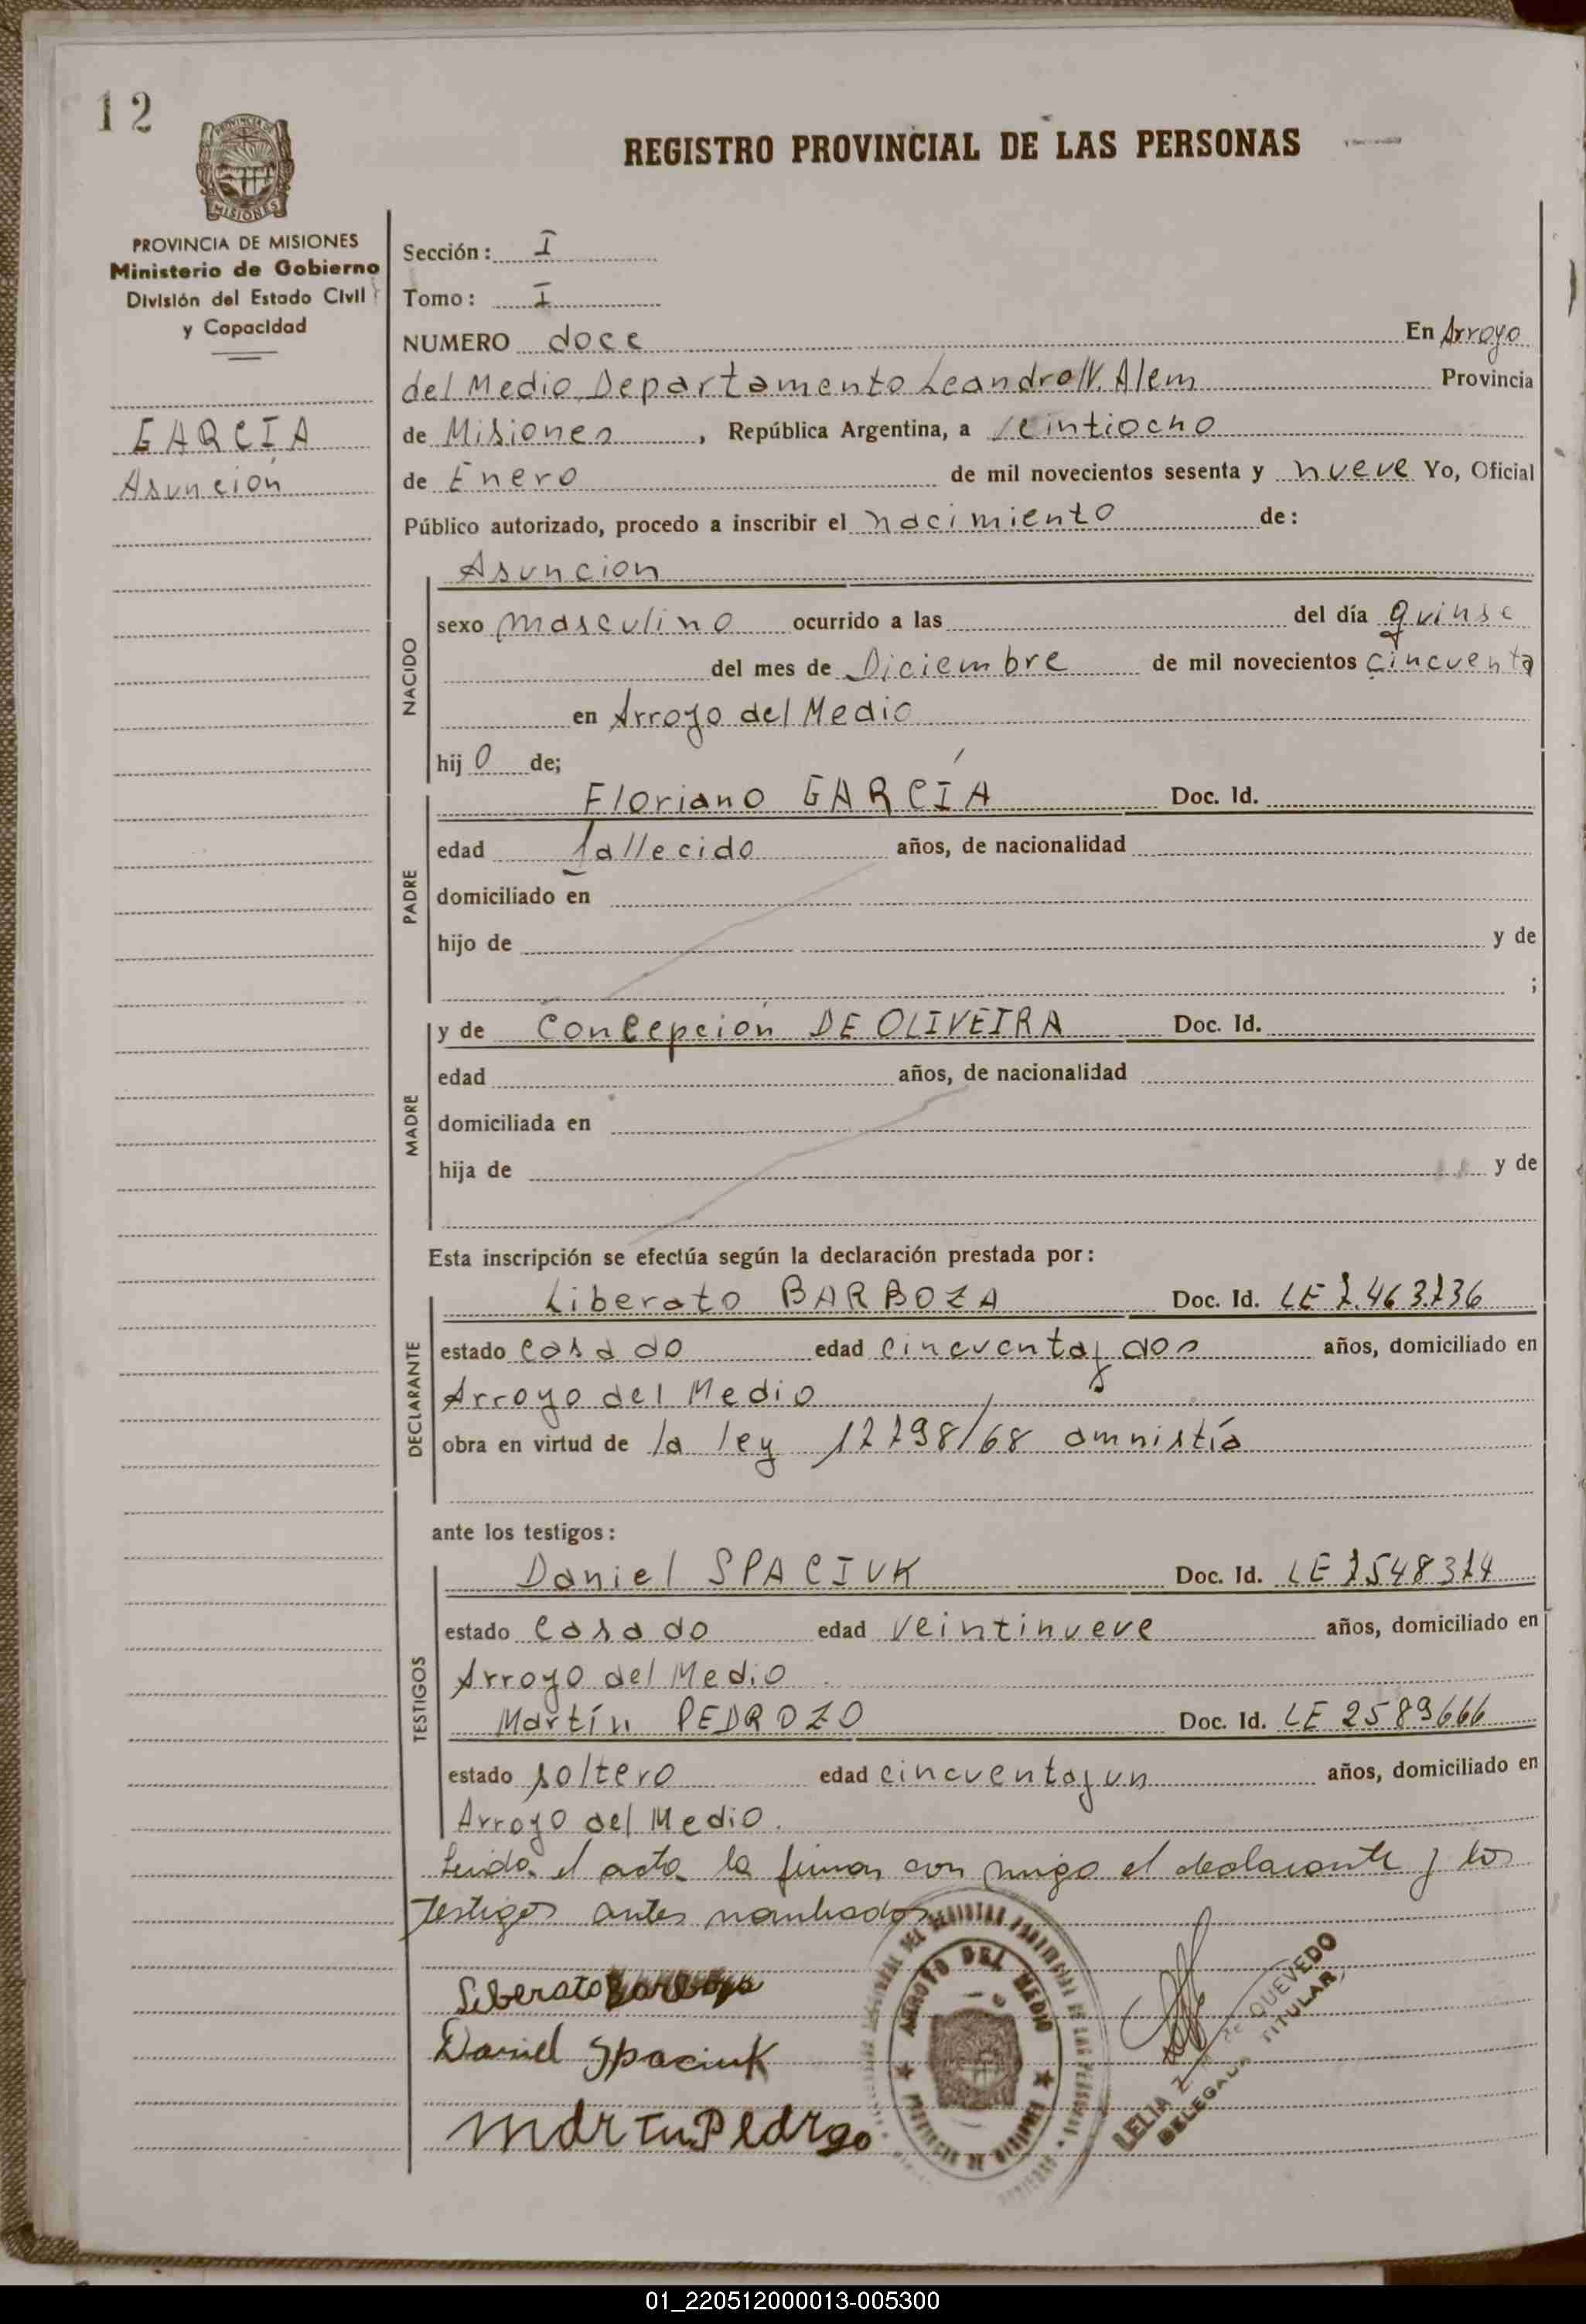 12
MISIONES
PROVINCIA DE MISIONES
Ministerio de Gobierno
División del Estado Civil
y Capacidad
GARCÍA
Asunción
REGISTRO PROVINCIAL DE LAS PERSONAS
Sección: I
Tomo: I
NUMERO doce En Arroyo
del Medio, Departamento Leandro N. Alem Provincia
de Misiones, República Argentina, a veintiocho
de Enero de mil novecientos sesenta y nueve Yo, Oficial
Público autorizado, procedo a inscribir el nacimiento de:
NACIDO
Asuncion
sexo masculino ocurrido a las del día quinse
del mes de Diciembre de mil novecientos cincuenta
en Arroyo del Medio
hijo de;
PADRE
Floriano GARCÍA Doc. Id.
edad fallecido años, de nacionalidad
domiciliado en
hijo de y de
;
MADRE
y de Concepción DE OLIVEIRA Doc. Id.
edad años, de nacionalidad
domiciliada en
hija de y de
Esta inscripción se efectúa según la declaración prestada por:
DECLARANTE
Liberato BARBOZA Doc. Id. LE
estado casado edad cincuenta y dos años, domiciliado en
Arroyo del Medio
obra en virtud de la ley amnistía
ante los testigos:
TESTIGOS
Daniel SPACIUK Doc. Id. LE
estado casado edad veintinueve años, domiciliado en
Arroyo del Medio
Martín PEDROZO Doc. Id. LE 2589666
estado soltero edad cincuenta y un años, domiciliado en
Arroyo del Medio.
Leida el acta la firman con migo el declarante y los
testigos antes nombrados
Liberato Barboza
Daniel Spaciuk
ARROYO DEL MEDIO
LELIA de QUEVEDO
DELEGADA TITULAR
01_220512000013-005300